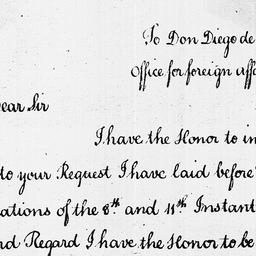 To Don Diego de
Office for foreign affa
ear Sir
I have the Honor to in
to your Request I have laid before
ations of the 8th and 11th Instant
nd Regard I have the Honor to be